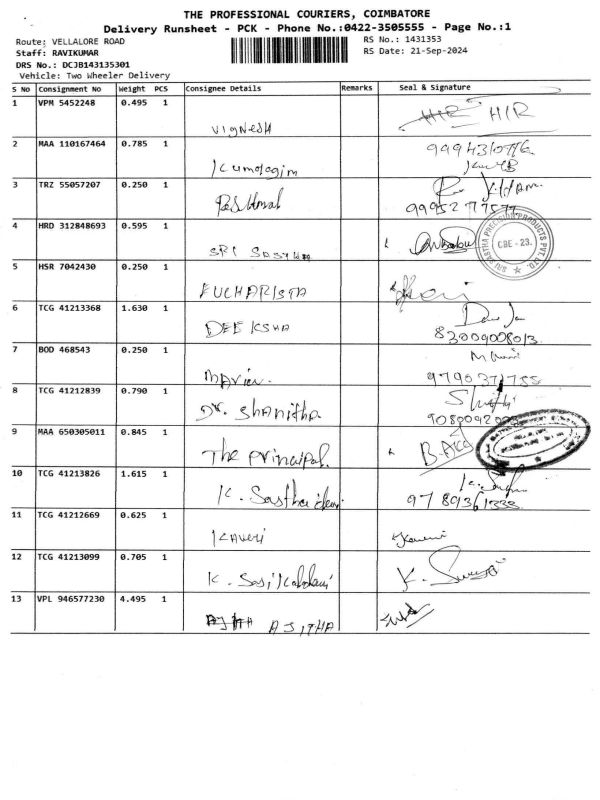 THE PROFESSIONAL COURIERS, COIMBATORE
Delivery Runsheet - PCK - Phone No.:0422-3505555 - Page No.:1
Route: VELLALORE ROAD
RS No.: 1431353
Staff: RAVIKUMAR
RS Date: 21-Sep-2024
DRS No.: DCJB143135301
Vehicle: Two Wheeler Delivery
S No Consignment No Weight PCS Consignee Details Remarks Seal & Signature
1 VPM 5452248 0.495 1 VIGNESH HIR
2 MAA 110167464 0.785 1
3 TRZ 55057207 0.250 1
4 HRD 312848693 0.595 1 SRI
SRI SASTHA PRECISION PRODUCTS PVT. LTD.
CBE - 23.
5 HSR 7042430 0.250 1 EUCHARISTA
6 TCG 41213368 1.630 1 DEEKSHA
83009008013
7 BOD 468543 0.250 1
9790371755
8 TCG 41212839 0.790 1 Dr. Shanitha
9 MAA 650305011 0.845 1 The principal.
10 TCG 41213826 1.615 1 K.
11 TCG 41212669 0.625 1 Kaveri
12 TCG 41213099 0.705 1 K. K.
13 VPL 946577230 4.495 1 AJITHA